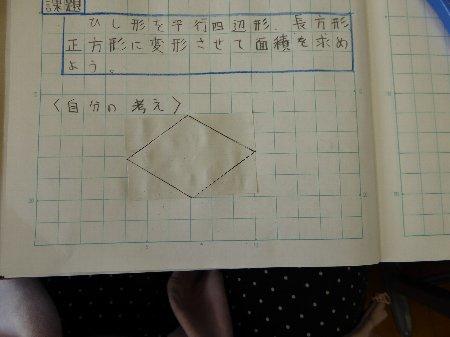 課題
ひし形を平行四辺形、長方形
正方形に変形させて面積を求め
よう。
〈自分の考え〉